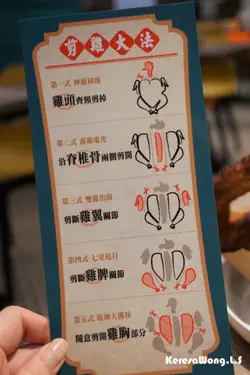 剪雞大法
第一式 神龍擺頭
雞頭齊頸剪掉
第二式
沿脊椎骨兩側剪開
第三式 雙龍出海
剪斷雞翼關節
第四式 七星追月
剪斷雞脾關節
第五式 乾坤大挪移
隨意剪開雞胸部分
KeresaWong.I.S